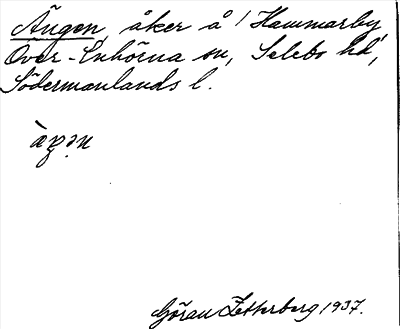 Ängen, åker å / Hammarby,
Över-Enhörna sn, Selebo hd,
Södermanlands l.
Göran Zetterberg 1937.